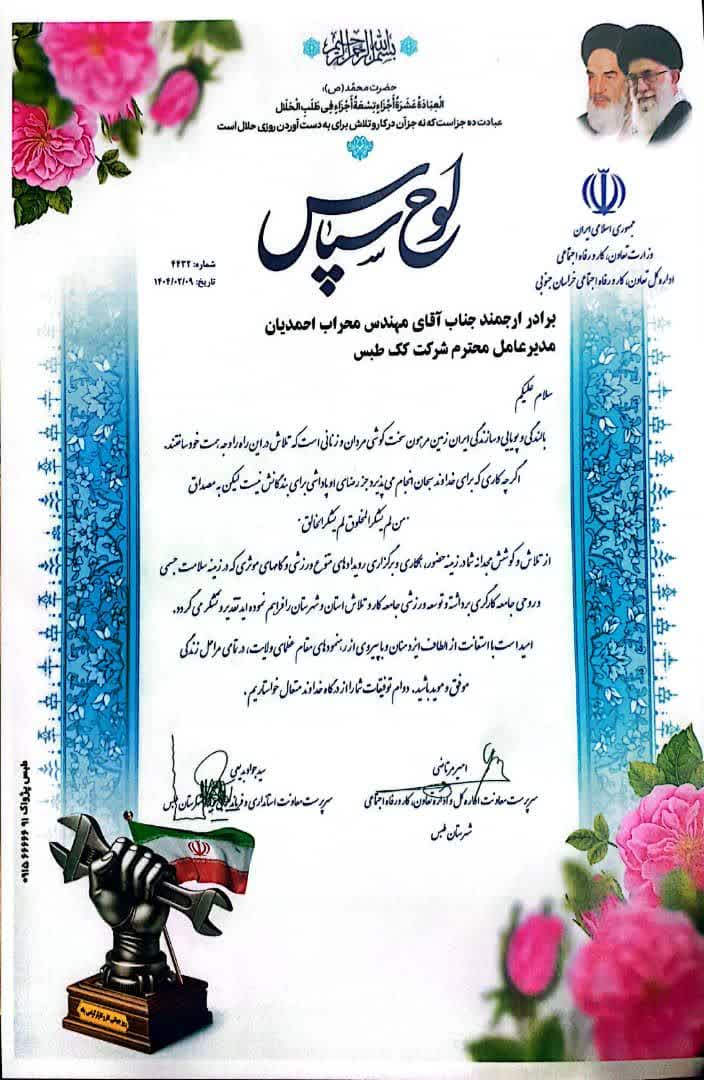 بسم الله الرحمن الرحیم
حضرت محمّد (ص):
العِبَادَةُ عَشَرَةُ أَجزَاءٍ تِسعَةُ أَجزَاءٍ فِی طَلَبِ الحَلال
عبادت ده جزاست که نه جزآن در کار و تلاش برای به دست آوردن روزی حلال است
لوح سپاس
جمهوری اسلامی ایران
وزارت تعاون، کار و رفاه اجتماعی
اداره کل تعاون، کار و رفاه اجتماعی خراسان جنوبی
شماره: ۴۴۳۲
تاریخ: ۱۴۰۴/۰۲/۰۹
برادر ارجمند جناب آقای مهندس محراب احمدیان
مدیرعامل محترم شرکت کک طبس
سلام علیکم
بالندگی و پویایی و سازندگی ایران زمین مرهون سخت کوشی مردان و زنانی است که تلاش در این راه را وجه همت خود ساختند.
اگرچه کاری که برای خداوند سبحان انجام می پذیرد جز رضای او پاداشی برای بندگانش نیست لیکن به مصداق
"من لم یشکر المخلوق لم یشکر الخالق"
از تلاش و کوشش مجدانه شما در زمینه حضور، همکاری و برگزاری رویدادهای متنوع ورزشی و گامهای موثری که در زمینه سلامت جسمی
و روحی جامعه کارگری برداشته و توسعه ورزشی جامعه کار و تلاش استان و شهرستان را فراهم نموده اید تقدیر و تشکر می گردد.
امید است با استعانت از الطاف ایزد منان و با پیروی از رهنمودهای مقام عظمای ولایت، در تمامی مراحل زندگی
موفق و موید باشید. دوام توفیقات شما را از درگاه خداوند متعال خواستاریم.
امیر مرتاضی
سرپرست معاونت اداره کل و اداره تعاون، کار و رفاه اجتماعی
شهرستان طبس
سید جواد بدیعی
سرپرست معاونت استانداری و شهرستان طبس
طبس پژواک ۹۱ ۶۶۶۶۶ ۰۹۱۵
روز جهانی کار و کارگر گرامی باد